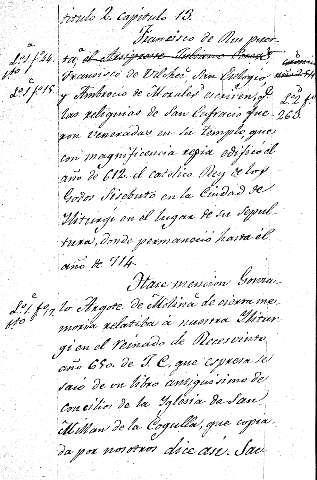 titulo 2. capitulo 13.
Francisco de Rus puer-
ta, el Arcipreste Juliano
Francisco de Vilches, San Eulogio,
y Ambrocio de Morales escriven, q.e
las reliquias de San Eufracio fue-
ron veneradas en su templo, que
con magnificencia regia edificó el
año de 612. el católico Rey de los
Godos Sisebuto en la Ciudad de
Iliturgi en el lugar de su sepul-
tura, donde permaneció hasta el
año de 714.
Hace mencion Gonza-
lo Argote de Molina de cierta me-
moria relatiba á nuestra Ilitur-
gi en el reinado de Recesvinto
año 650. de J. C., que espresa se
sacó de un libro antiguisimo de
concilios de la Yglesia de San
Millan de la Cogulla, que copia-
da por nosotros dice así. Sau